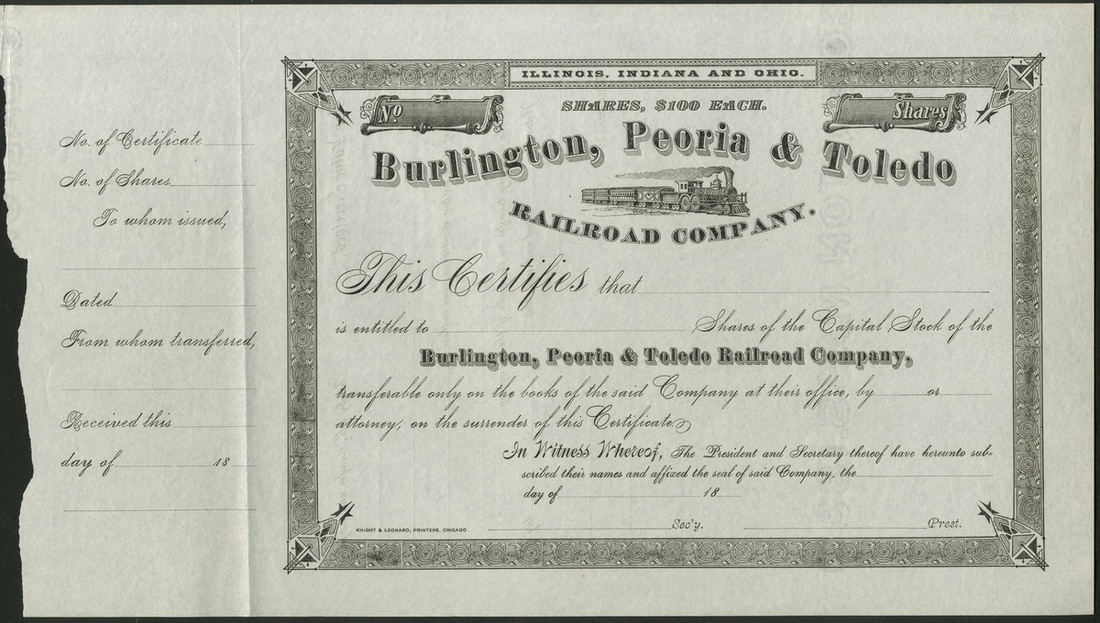 No. of Certificate
No. of Shares
To whom issued,
Dated
From whom transferred,
Received this
day of 18
ILLINOIS, INDIANA AND OHIO.
No
SHARES, $100 EACH.
Shares
Burlington, Peoria & Toledo
RAILROAD COMPANY.
This Certifies that
is entitled to Shares of the Capital Stock of the
Burlington, Peoria & Toledo Railroad Company,
transferable only on the books of the said Company at their office, by or
attorney, on the surrender of this Certificate
In Witness Whereof, The President and Secretary thereof have hereunto sub-
scribed their names and affixed the seal of said Company, the
day of 18
KNIGHT & LEONARD, PRINTERS, CHICAGO
Sec'y. Prest.